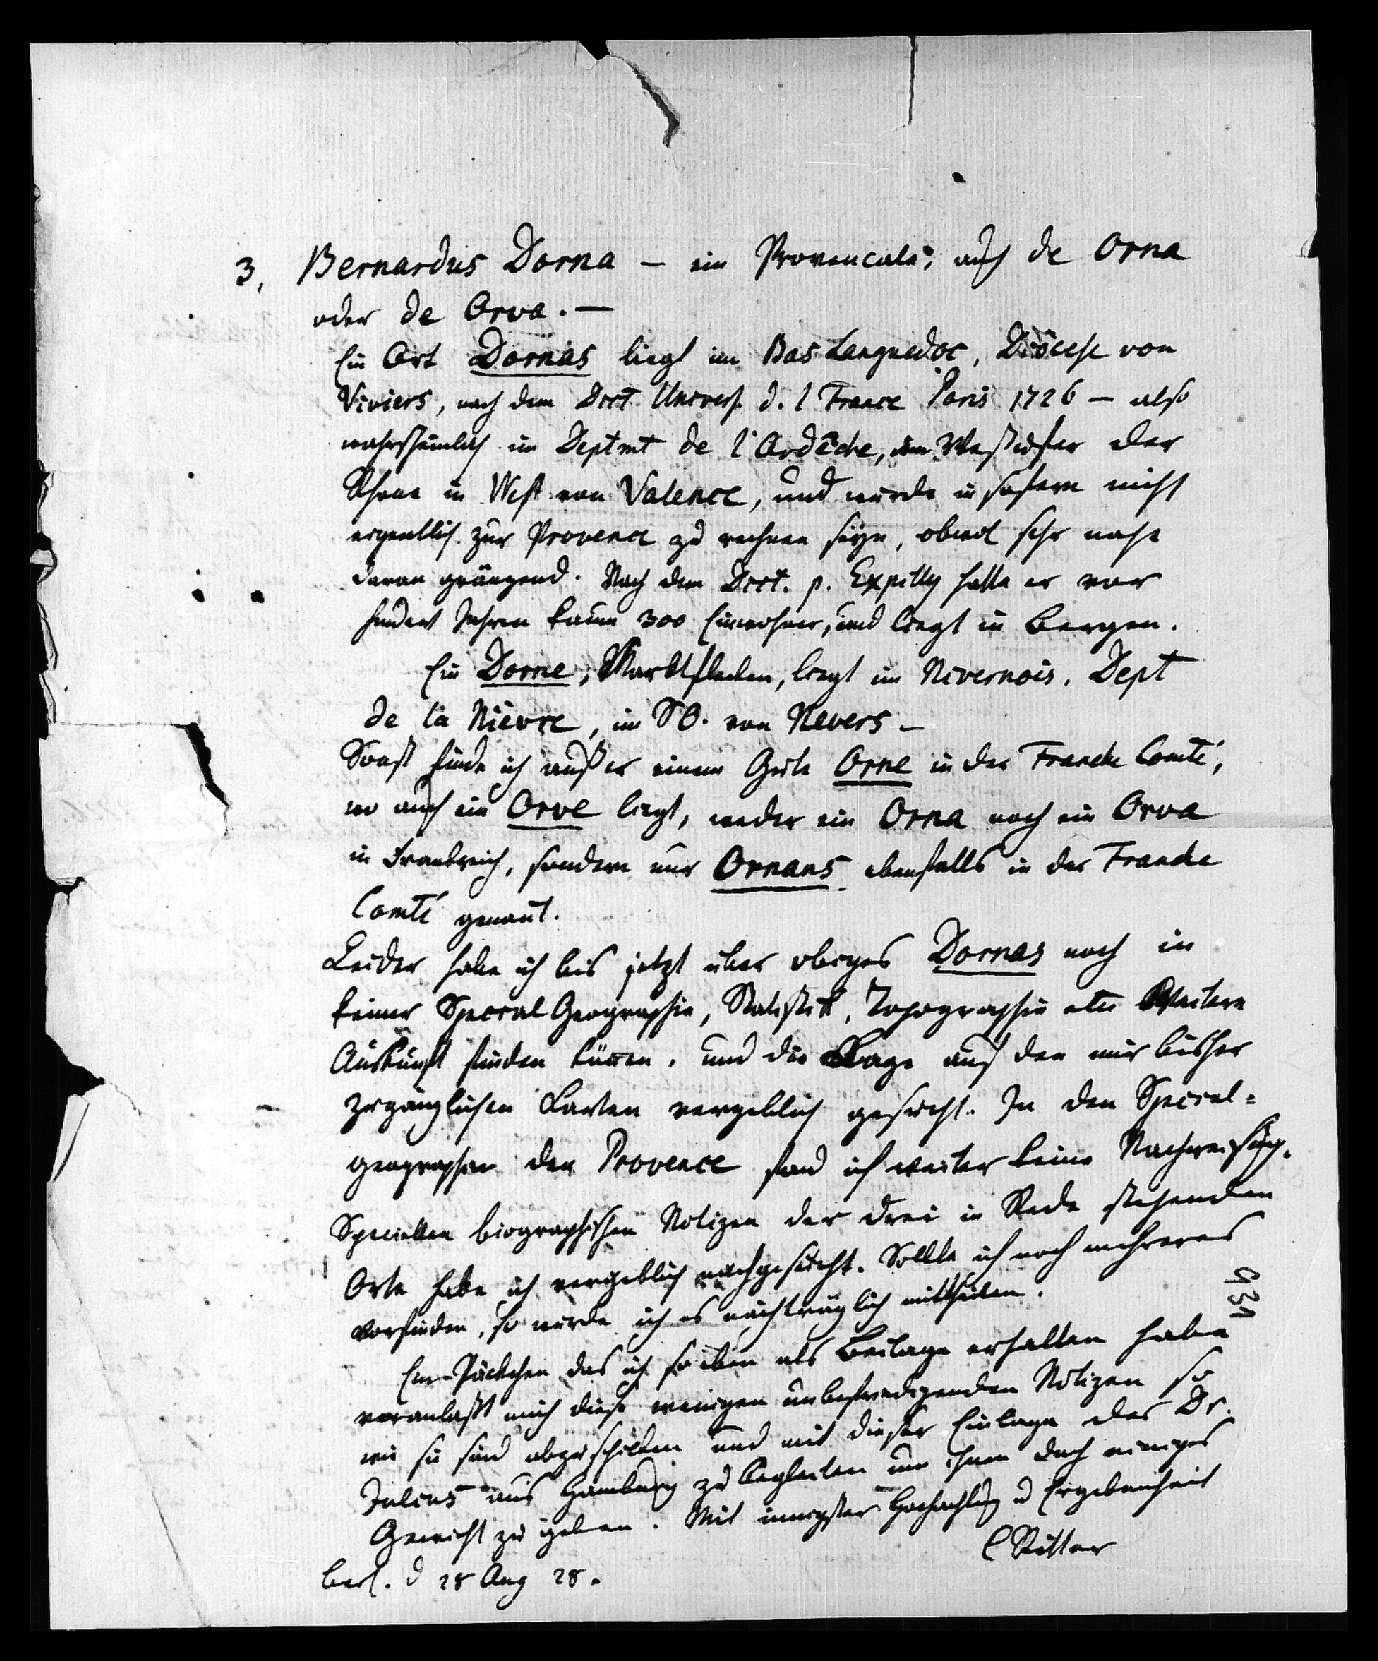 3, Bernardus Dorna – ein Provencale; auch de Orna
oder de Orva. –
Ein Ort Dornas liegt im Bas Languedoc, Diöcese von
Viviers, nach dem Dict Univers. d. l France Paris 1726 – also
wahrscheinlich im Deptmt de l'Ardèche, am Westufer der
Rhone in West von Valence, und würde in sofern nicht
eigentlich zur Provence zu rechnen seyn, obwol sehr nahe
daran gränzend. Nach dem Dict. p. Expilly hatte er vor
hundert Jahren kaum 300 Einwohner, und liegt in Bergen.
Ein Dorne, Marktflecken, liegt im Nivernois, Dept
de la Nievre, in SO. von Nevers –
Sonst finde ich außer einem Gute Orne in der Franche Comté,
wo auch ein Orve liegt, weder ein Orna noch ein Orva
in Frankreich, sondern nur Ornans ebenfalls in der Franche
Comté genant.
Leider habe ich bis jetzt über obiges Dornas noch in
keiner Special Geographie, Statistik, Topographie etc Weitere
Auskunft finden können, und die Lage auf den mir bisher
zugänglichen Karten vergeblich gesucht. In den Special-
geographien der Provence fand ich weiter keine Nachweisung.
Speciellen biographischen Notizen der drei in Rede stehenden
Orte habe ich vergeblich nachgesucht. Sollte ich noch mehreres
vorfinden, so würde ich es nachträglich mittheilen.
931
Ein Päckchen das ich so eben als Beilage erhalten habe
veranlaßt mich diese wenigen unbefriedigenden Notizen so
wie sie sind abzuschicken und mit dieser Einlage des Dr.
Julius aus Hamburg zu begleiten um ihnen doch einiges
Gewicht zu geben. Mit innigster Hochachtung u Ergebenheit
C Ritter
Berl. d 28 Aug 28.